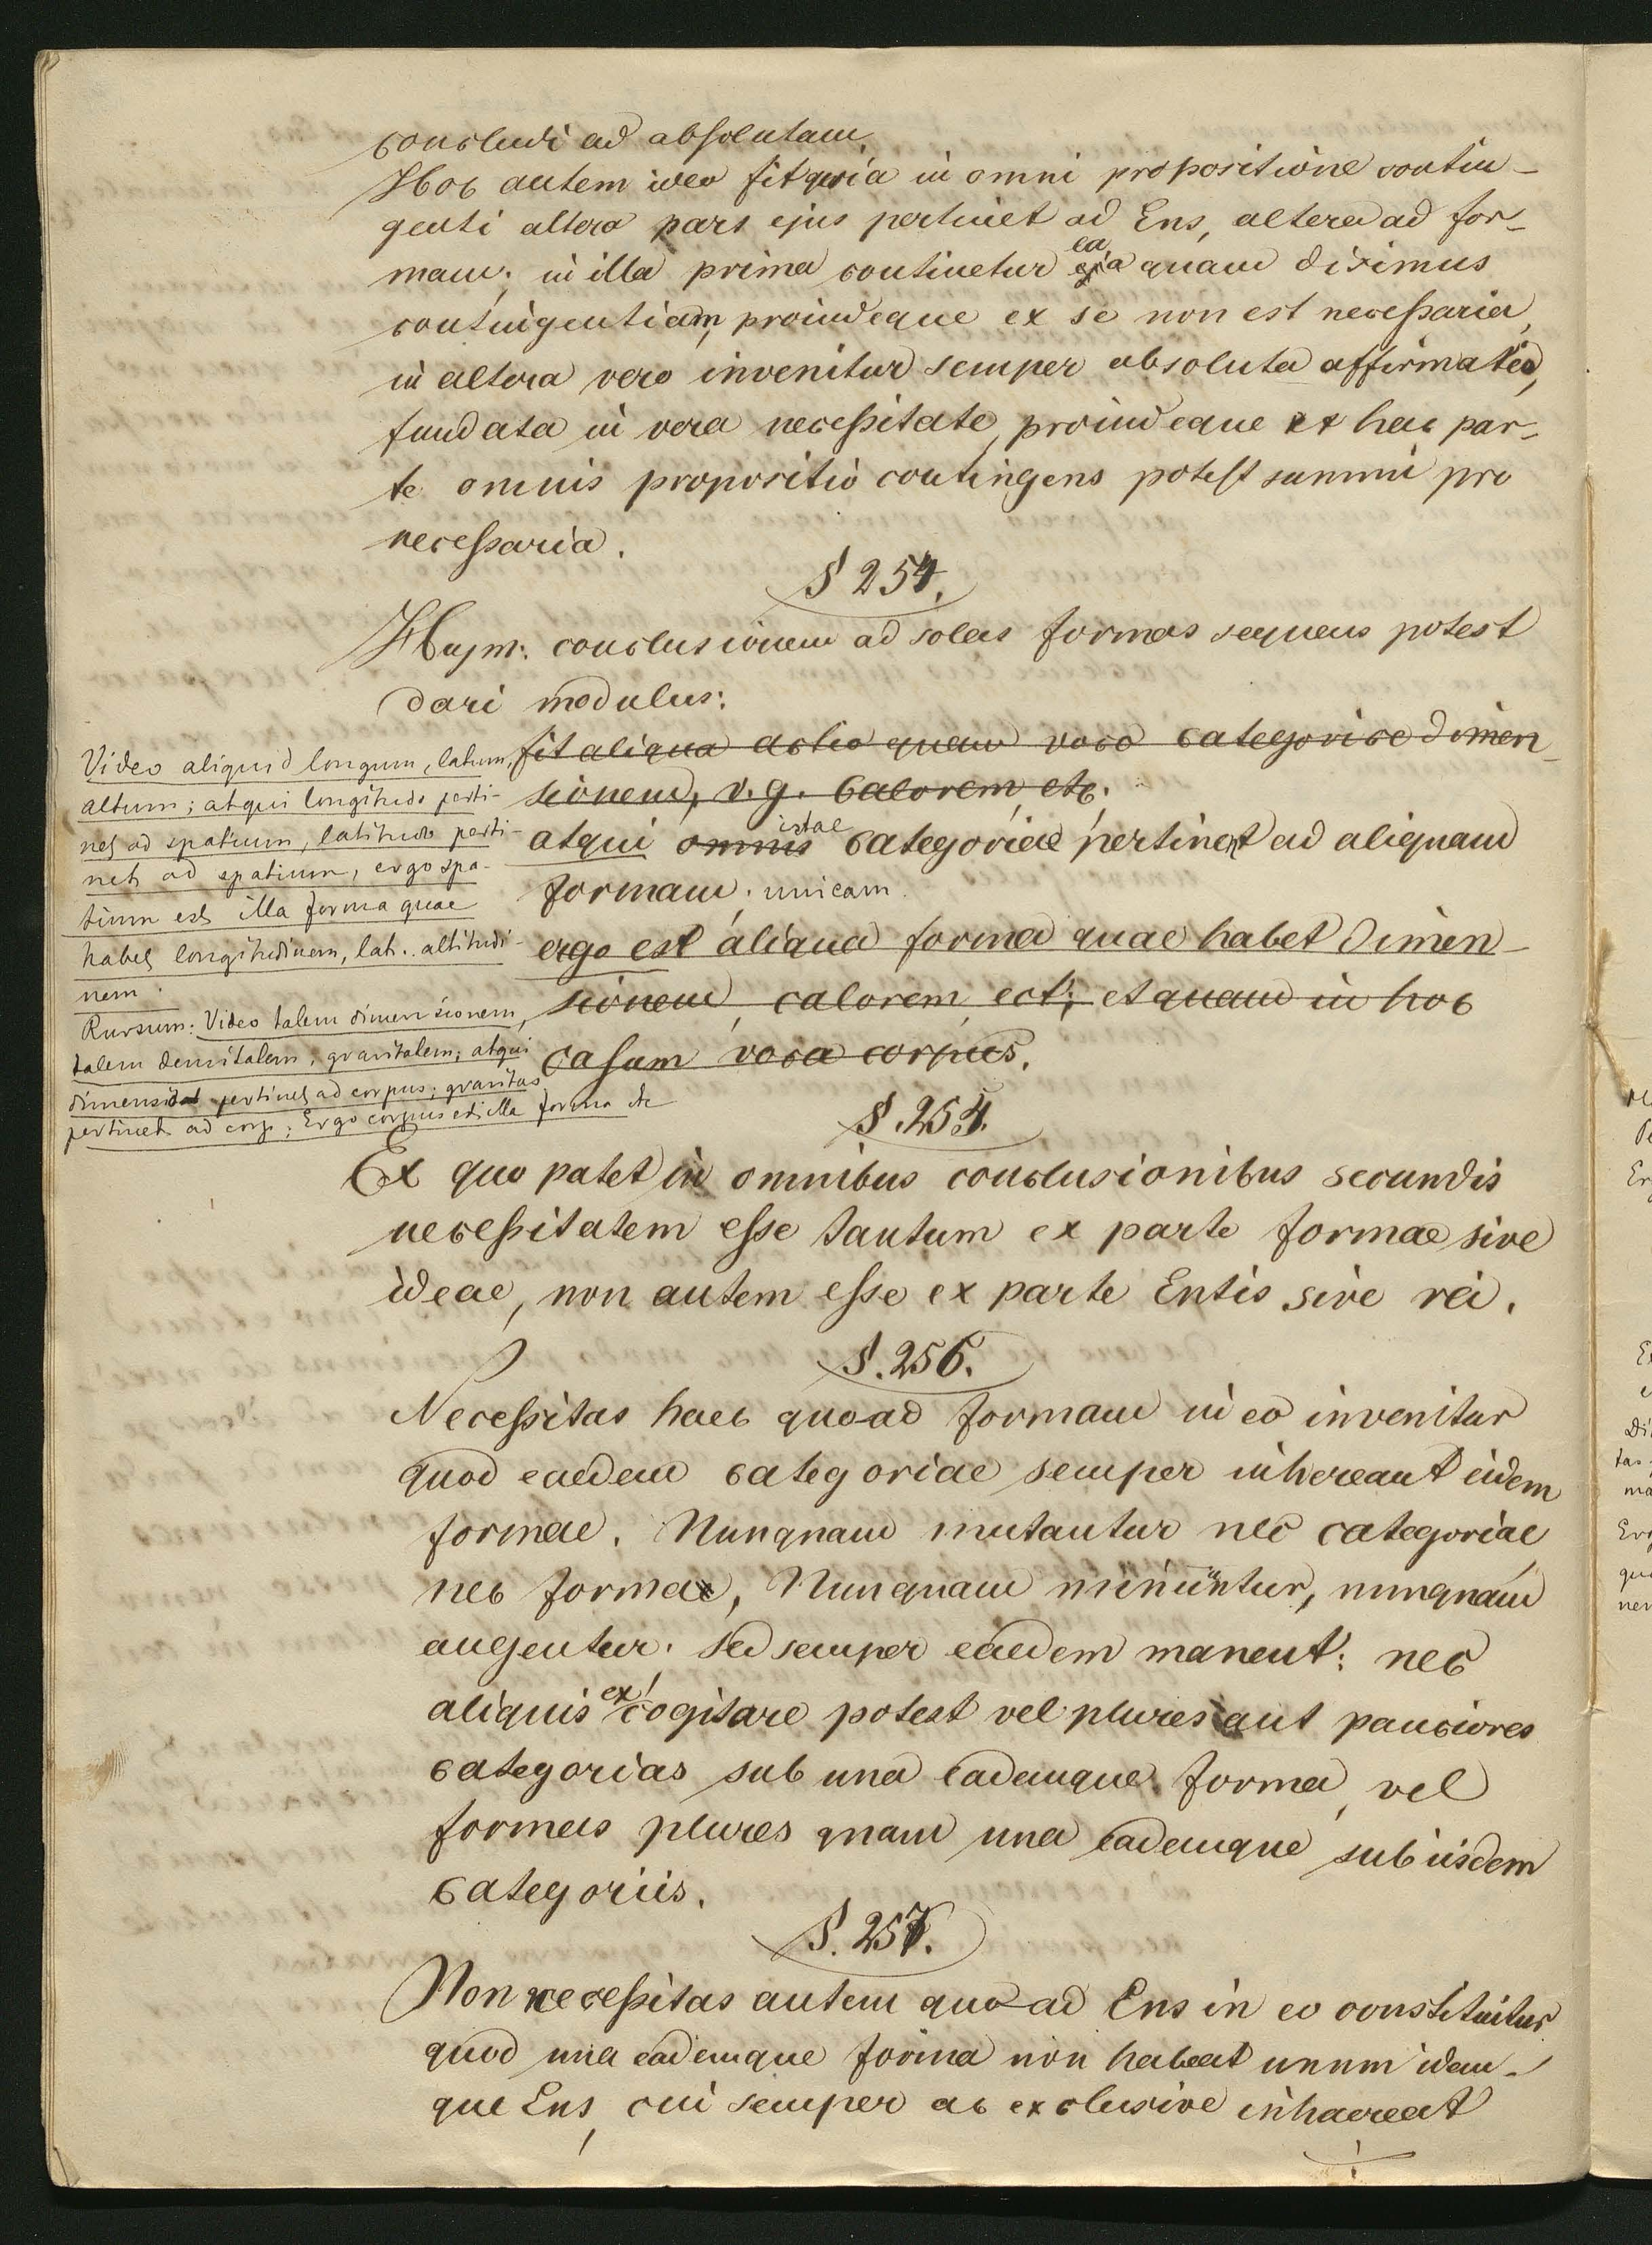 concludi ad absolutam.
Hoc autem ideo fit quia in omni propositione contin-
genti altera pars ejus pertinet ad Ens, altera ad for-
mam; in illa prima continetur ea quam diximus
contingentiam, proindeque ex se non est necessaria,
in altera vero invenitur semper absoluta affirmatio,
fundata in vera necessitate, proindeque ex hac par-
te omnis propositio contingens potest summi pro
necessaria.
§ 254.
Hujm: conclusionem ad solas formas sequens potest
dari modulus:
fit aliqua actio quam voco categorice dimen-
sionem, v.g. calorem, etc.
atqui omnis istae categoriae pertinent ad aliquam
formam. unicam.
ergo est aliqua forma quae habet dimen-
sionem, calorem, ect; et quam in hoc
casum voca corpus.
Video aliquid longum, latum,
altum; atqui longitudo perti-
net ad spatium, latitudo perti-
net ad spatium, ergo spa-
tium est illa forma quae
habet longitudinem, lat.. altitudi-
nem.
Rursum: Video talem dimensionem,
talem densitatem, gravitatem; atqui
dimensio pertinet ad corpus; gravitas
pertinet ad corp; Ergo corpus est illa forma etc
§. 254.
Ex quo patet in omnibus conclusionibus secundis
necessitatem esse tantum ex parte formae sive
ideae, non autem esse ex parte Entis sive rei.
§. 256.
Necessitas haec quo-ad formam in eo invenitur
quod eaedem categoriae semper inhereant eidem
formae. Nunquam mutantur nec categoriae
nec formae, Nunquam minuuntur, nunquam
augentur. sed semper eaedem manent: nec
aliquis excogitare potest vel plures aut pauciores
categorias sub una eademque forma, vel
formas plures quam una eademque sub iisdem
categoriis.
§. 257.
Non necessitas autem quo-ad Ens in eo constituitur
quod una eademque forma non habeat unum idem-
que Ens, cui semper ac exclusive inhaereat